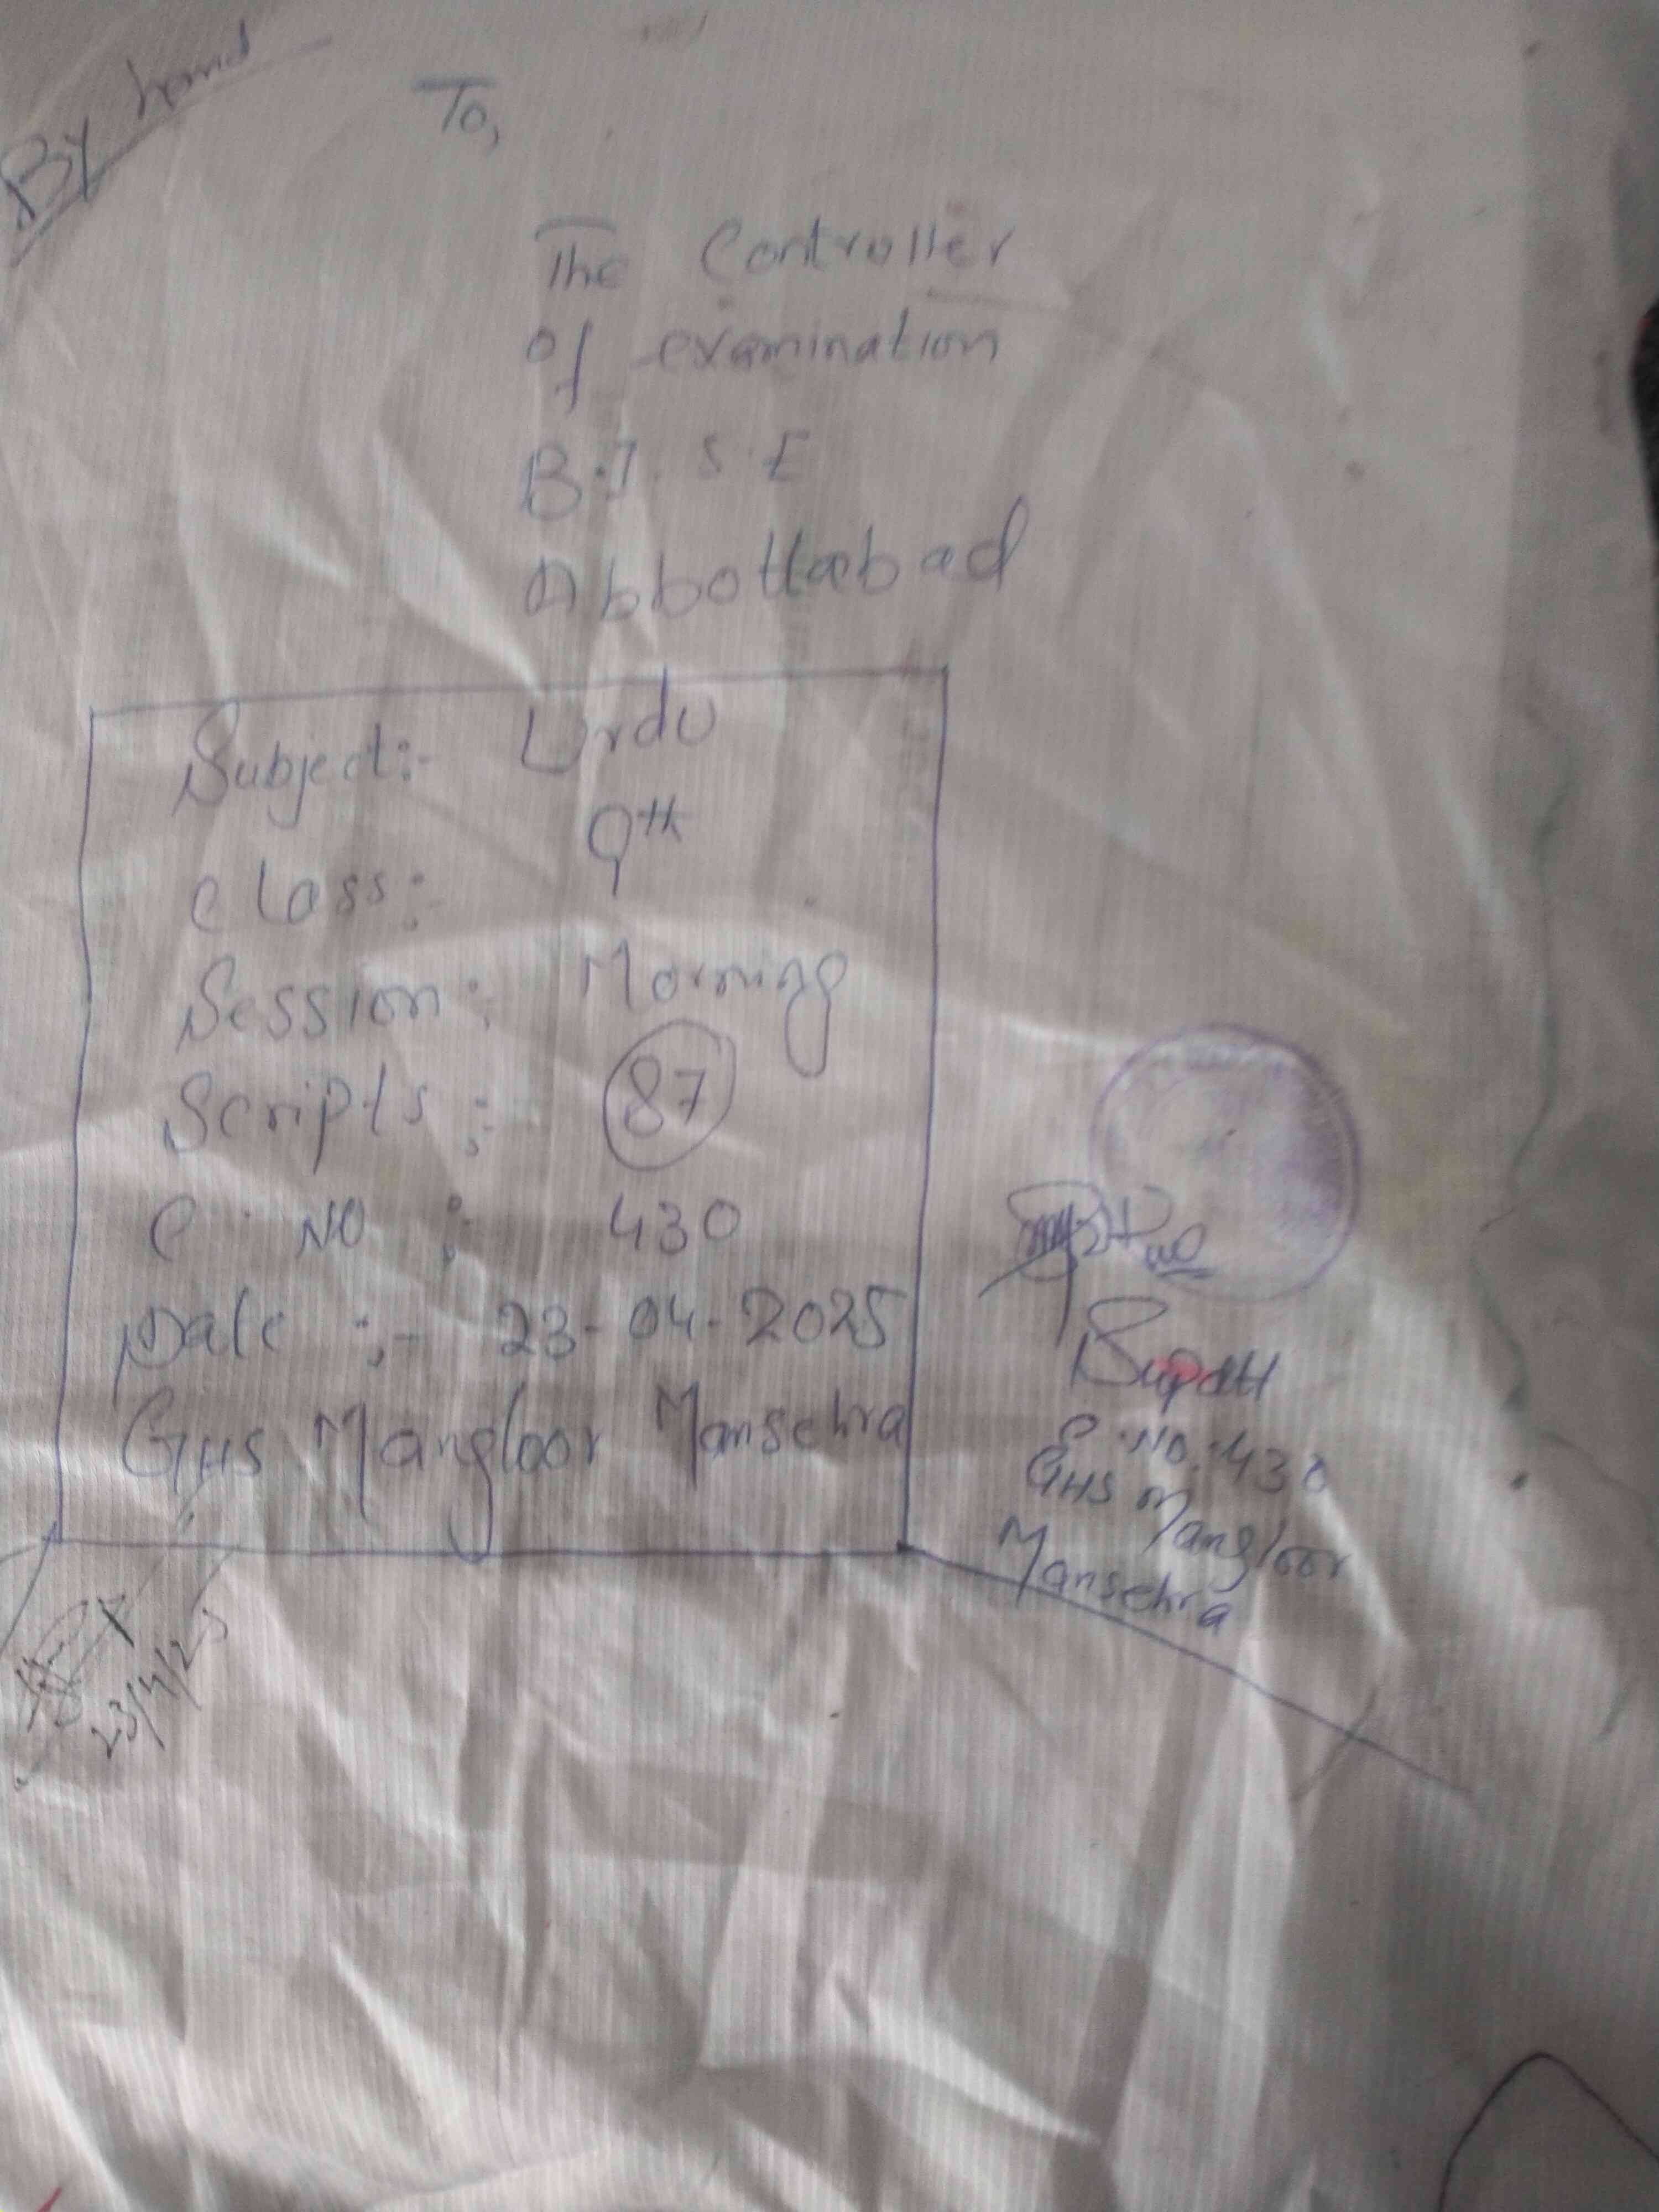 By hand
To,
The Controller
of examination
B.I.S.E
Abbottabad
Subject:- Urdu
Class:- 9th
Session:- Morning
Scripts:- 87
C.NO:- 430
Date:- 23-04-2025
GHS Mangloor Mansehra
Supdtt
C.No.430
GHS Mangloor
Mansehra
23/4/25